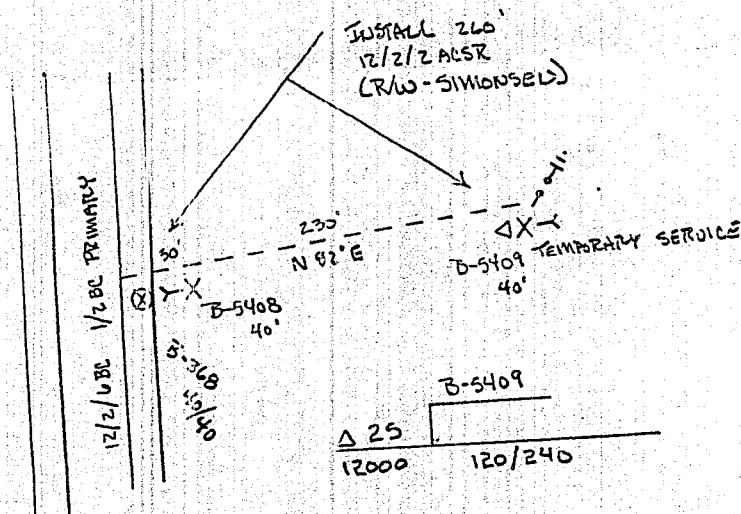 INSTALL 260'
12/2/2 ACSR
(R/W - SIMONSEN)
12/2/6 BC 1/2 BC PRIMARY
30'
230'
N 82° E
B-5408
40'
B-5409 TEMPORARY SERVICE
40'
B-368
/40
B-5409
Δ 25
12000 120/240